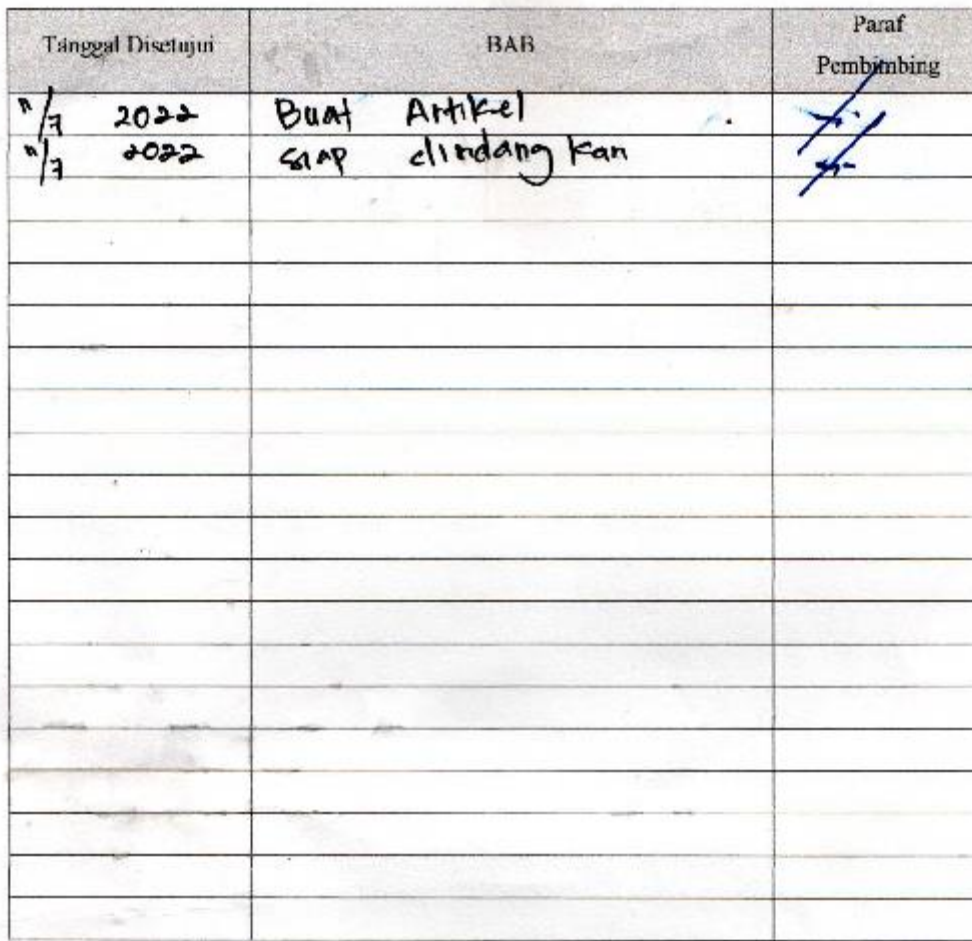 Tanggal Disetujui BAB Paraf Pembimbing
11/7 2022 Buat Artikel
11/7 2022 siap disidangkan